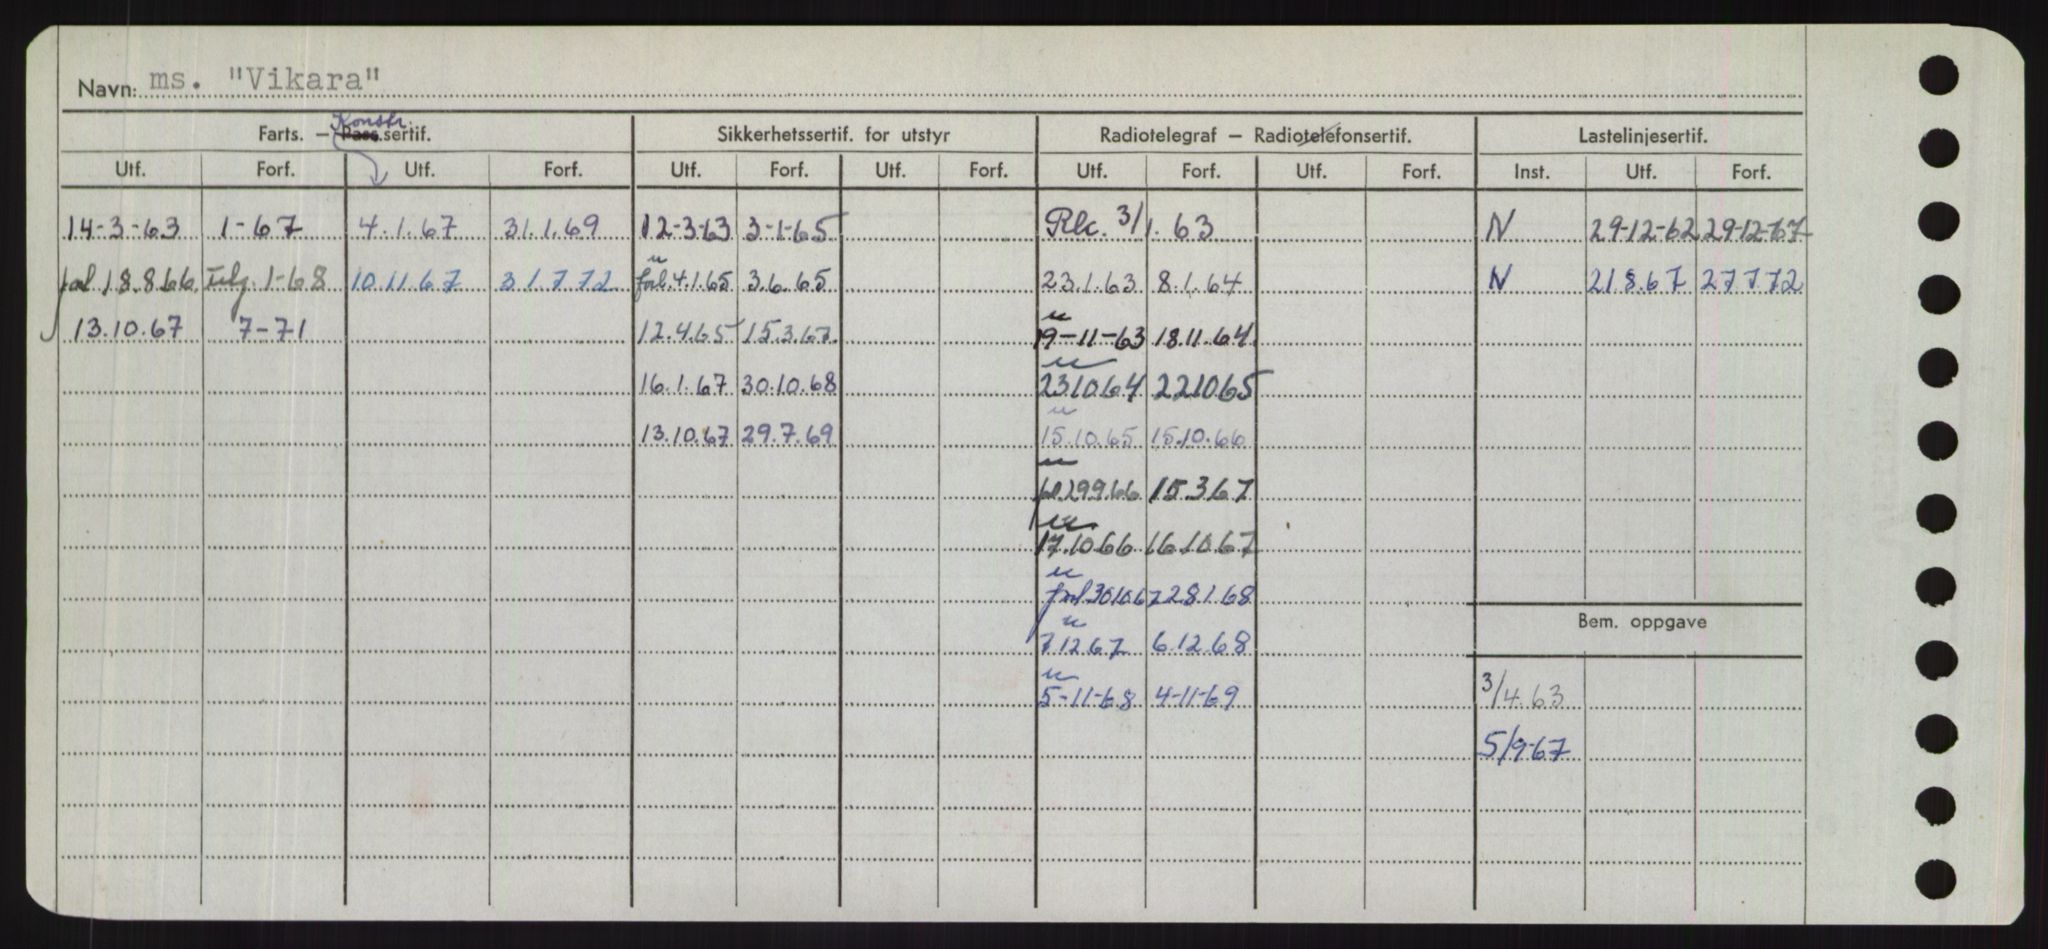 Navn: ms. "Vikara"
Konstr.
Farts. – Pass.sertif. Sikkerhetssertif. for utstyr Radiotelegraf – Radiotelefonsertif. Lastelinjesertif.
Utf. Forf. Utf. Forf. Utf. Forf. Utf. Forf. Utf. Forf. Utf. Forf. Inst. Utf. Forf.
14-3-63 1-67 4.1.67 31.1.69 12-3-63 3-1-65 Rlc. 3/1.63 N 29-12-62 29-12-67
forl. 18.8.66 1-68 10.11.67 31.7.72 forl. 4.1.65 3.6.65 23.1.63 8.1.64 N 21.8.67 27.7.72
13.10.67 7-71 12.4.65 15.3.67. 19-11-63 18.11.64
16.1.67 30.10.68 23.10.64 22.10.65
13.10.67 29.7.69 15.10.65 15.10.66
forl. 29.9.66 15.3.67
17.10.66 16.10.67
forl. 30.10.67 28.1.68
Bem. oppgave
7.12.67 6.12.68
5-11-68 4-11-69 3/4.63
5/9-67